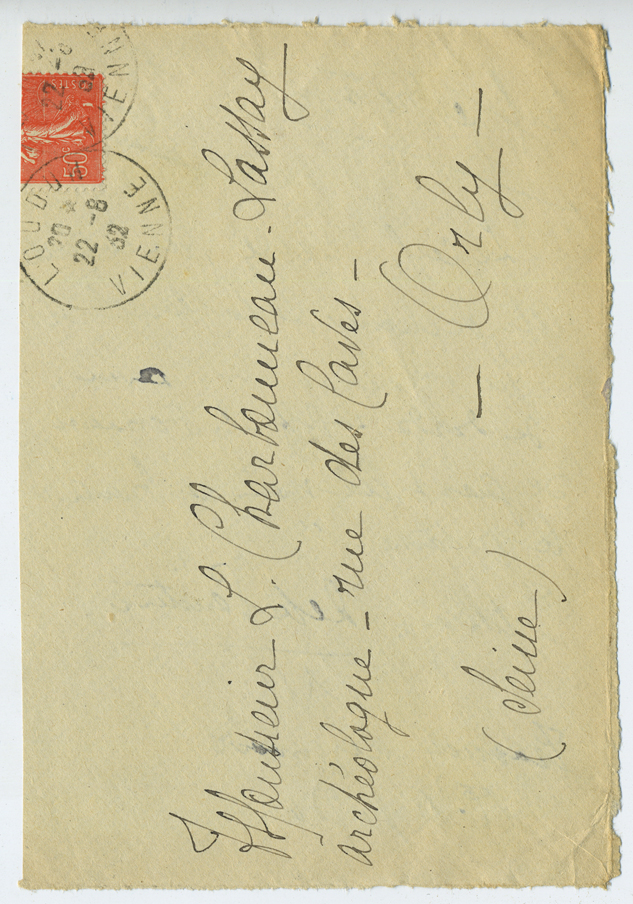 Monsieur L. Charbonneau-Lassay
archéologue - rue des Caves -
- Orly -
(Seine)
LOUDUN
20 *
22 - 8
32
VIENNE
22 - 8
32
VIENNE
POSTES
50c